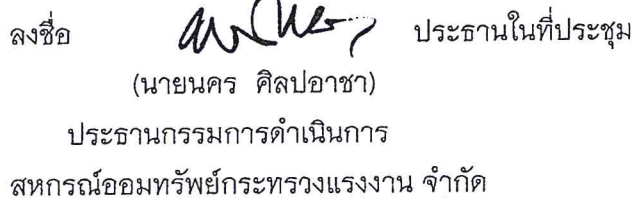 ลงชื่อ ประธานในที่ประชุม
(นายนคร ศิลปอาชา)
ประธานกรรมการดำเนินการ
สหกรณ์ออมทรัพย์กระทรวงแรงงาน จำกัด